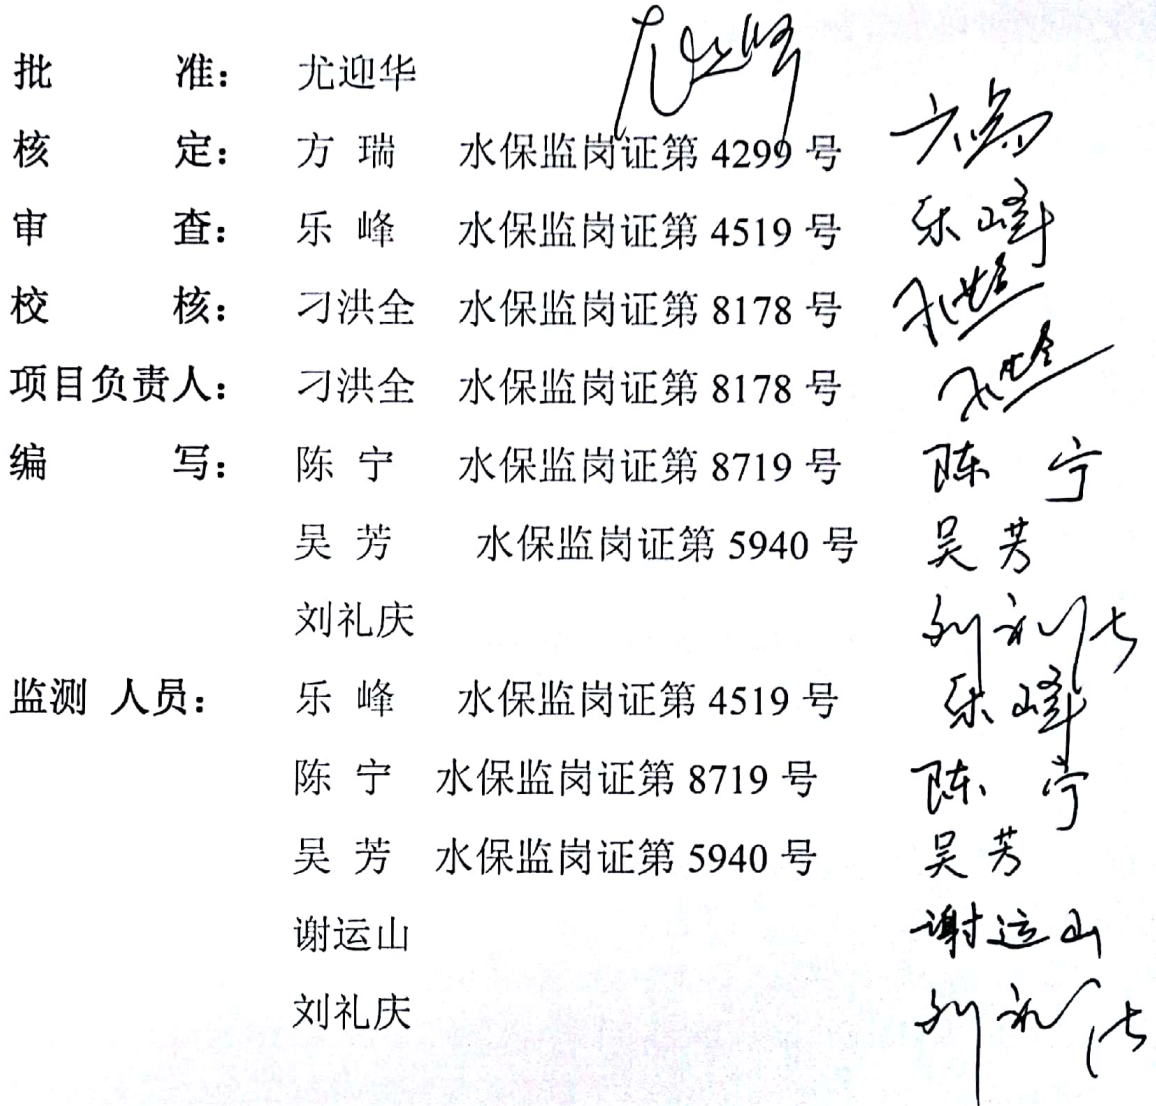 批 准： 尤迎华
核 定： 方 瑞 水保监岗证第 4299 号 方瑞
审 查： 乐 峰 水保监岗证第 4519 号 乐峰
校 核： 刁洪全 水保监岗证第 8178 号
项目负责人： 刁洪全 水保监岗证第 8178 号
编 写： 陈 宁 水保监岗证第 8719 号 陈 宁
吴 芳 水保监岗证第 5940 号 吴芳
刘礼庆 刘礼庆
监测 人员： 乐 峰 水保监岗证第 4519 号 乐峰
陈 宁 水保监岗证第 8719 号 陈 宁
吴 芳 水保监岗证第 5940 号 吴芳
谢运山 谢运山
刘礼庆 刘礼庆